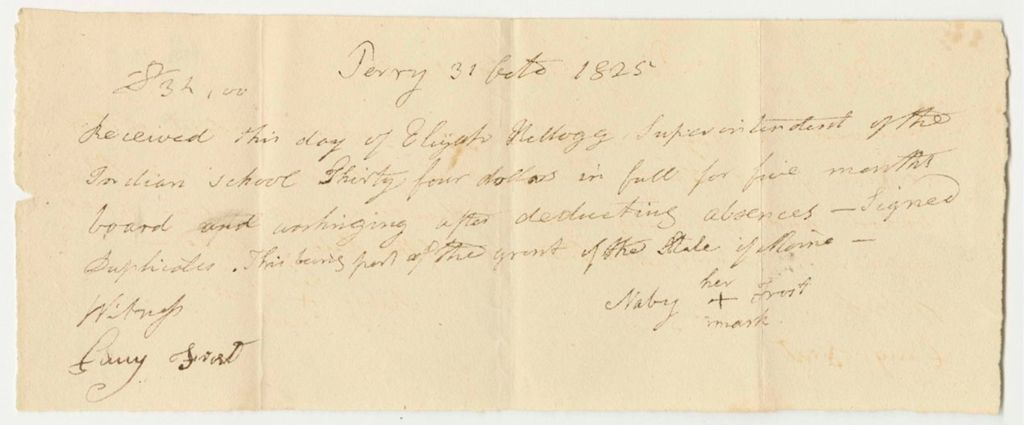 Perry 31 Octo 1825
$34,00
Received this day of Elijah Kellogg Superintendent of the
Indian school Thirty four dollars in full for five months
board and washing after deducting absences — Signed
Duplicates. This being part of the grant of the State of Maine —
Witness
Naby her + mark Frost
Frost